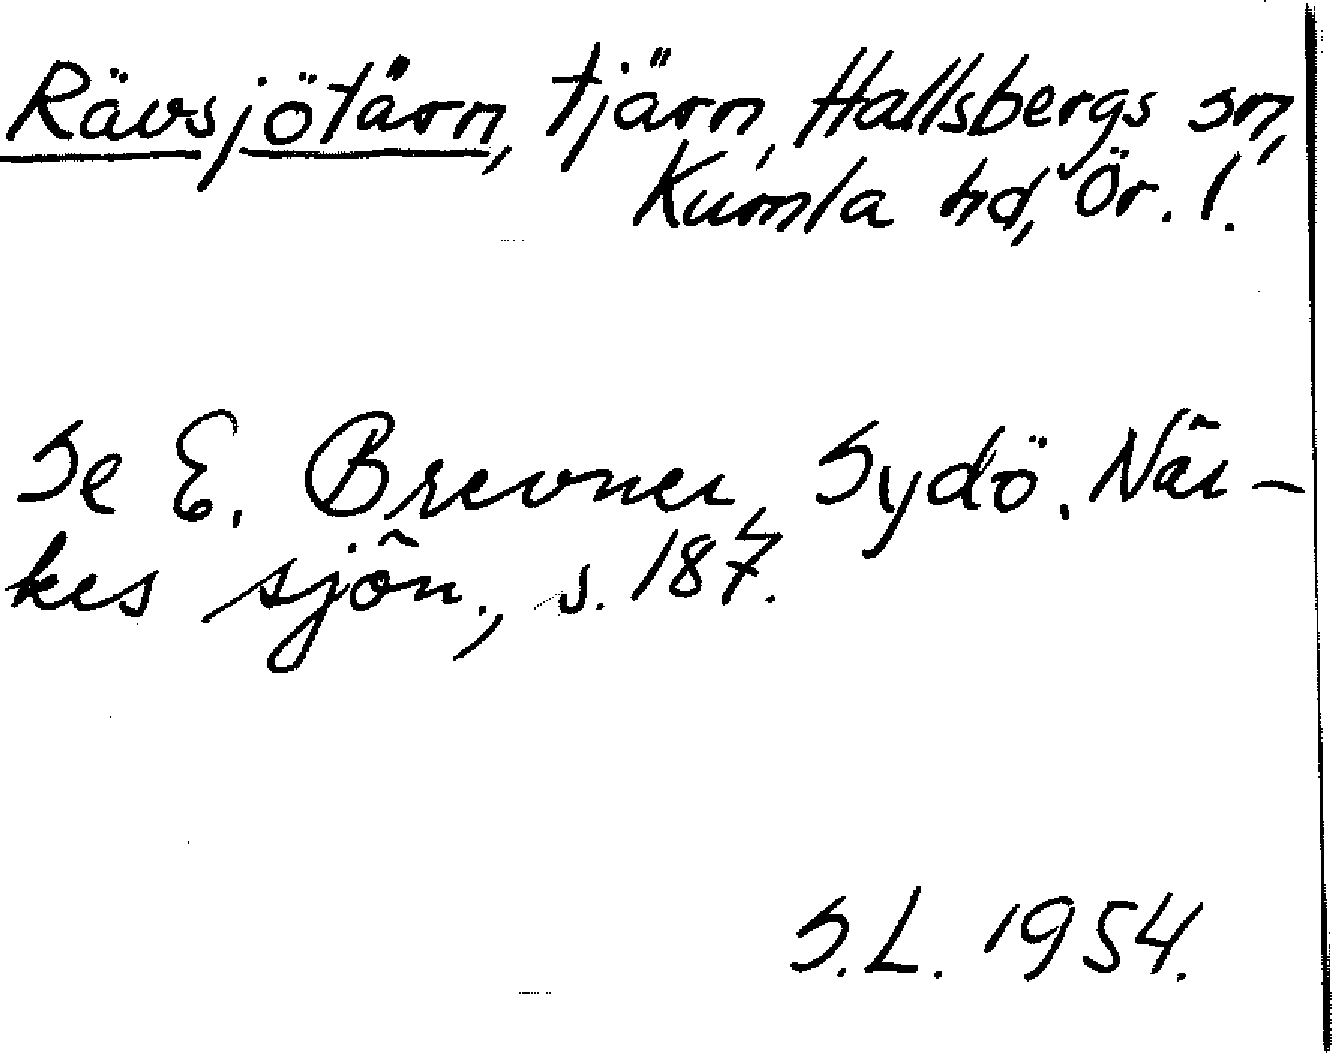 Rävsjötärn, tjärn, Hallsbergs sn,
Kumla hd, Ör. l.
Se E. Brevner, Sydö. När-
kes sjön., s. 187.
S.L. 1954.